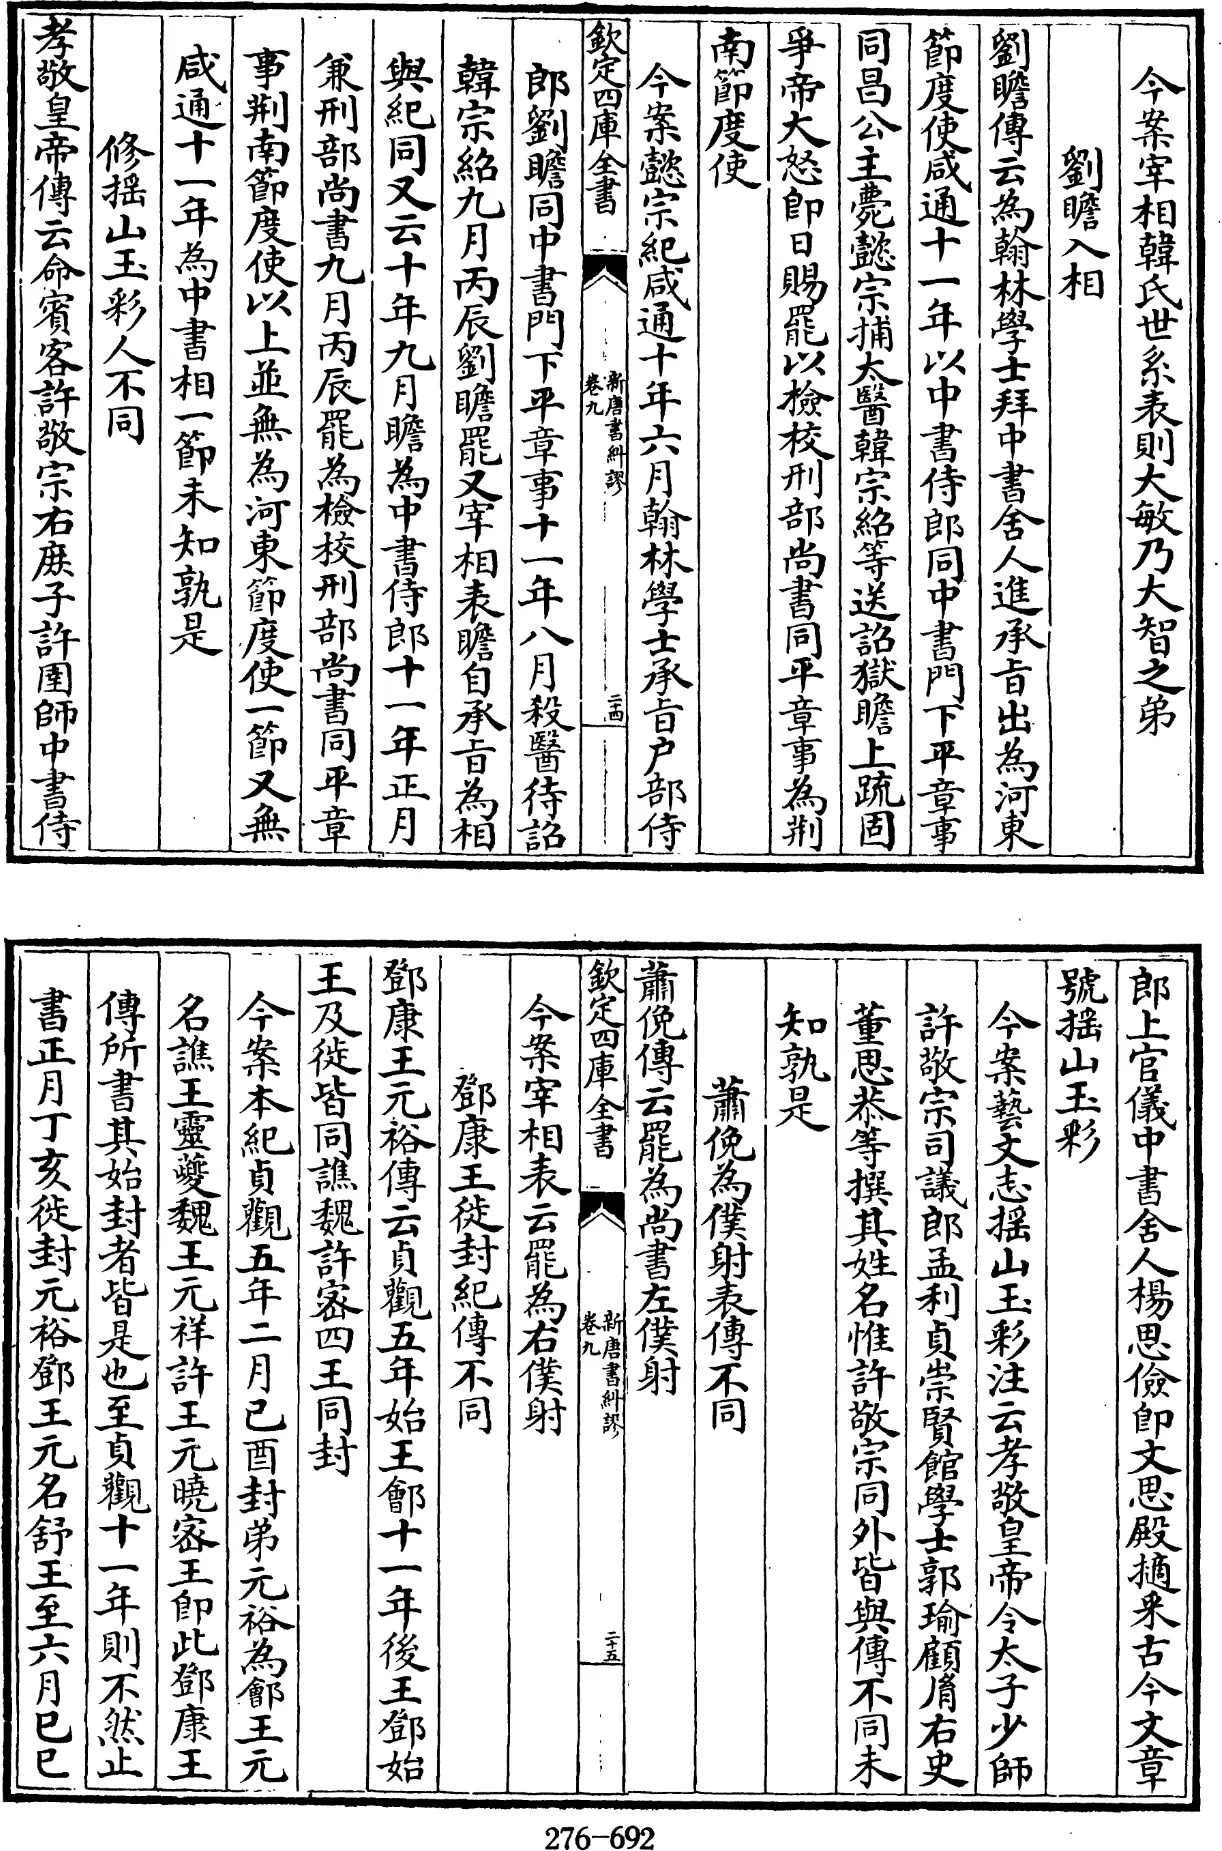 今案宰相韓氏世系表則大敏乃大智之弟
劉瞻入相
劉瞻傳云為翰林學士拜中書舍人進承旨出為河東
節度使咸通十一年以中書侍郎同中書門下平章事
同昌公主薨懿宗捕太醫韓宗紹等送詔獄瞻上疏固
爭帝大怒即日賜罷以檢校刑部尚書同平章事為荆
南節度使
今案懿宗紀咸通十年六月翰林學士承旨户部侍
欽定四庫全書
新唐書糾謬
卷九
二十四
郎劉瞻同中書門下平章事十一年八月殺醫待詔
韓宗紹九月丙辰劉瞻罷又宰相表瞻自承旨為相
與紀同又云十年九月瞻為中書侍郎十一年正月
兼刑部尚書九月丙辰罷為檢校刑部尚書同平章
事荆南節度使以上並無為河東節度使一節又無
咸通十一年為中書相一節未知孰是
修揺山玉彩人不同
孝敬皇帝傳云命賓客許敬宗右庶子許圉師中書侍
郎上官儀中書舍人楊思儉即文思殿摘采古今文章
號揺山玉彩
今案藝文志揺山玉彩注云孝敬皇帝令太子少師
許敬宗司議郎孟利貞崇賢館學士郭瑜顧㣧右史
董思恭等撰其姓名惟許敬宗同外皆與傳不同未
知孰是
蕭俛為僕射表傳不同
蕭俛傳云罷為尚書左僕射
欽定四庫全書
新唐書糾謬
卷九
二十五
今案宰相表云罷為右僕射
鄧康王徙封紀傳不同
鄧康王元裕傳云貞觀五年始王鄶十一年後王鄧始
王及徙皆同譙魏許宻四王同封
今案本紀貞觀五年二月己酉封弟元裕為鄶王元
名譙王靈夔魏王元祥許王元曉宻王即此鄧康王
傳所書其始封者皆是也至貞觀十一年則不然止
書正月丁亥徙封元裕鄧王元名舒王至六月己巳
276-692